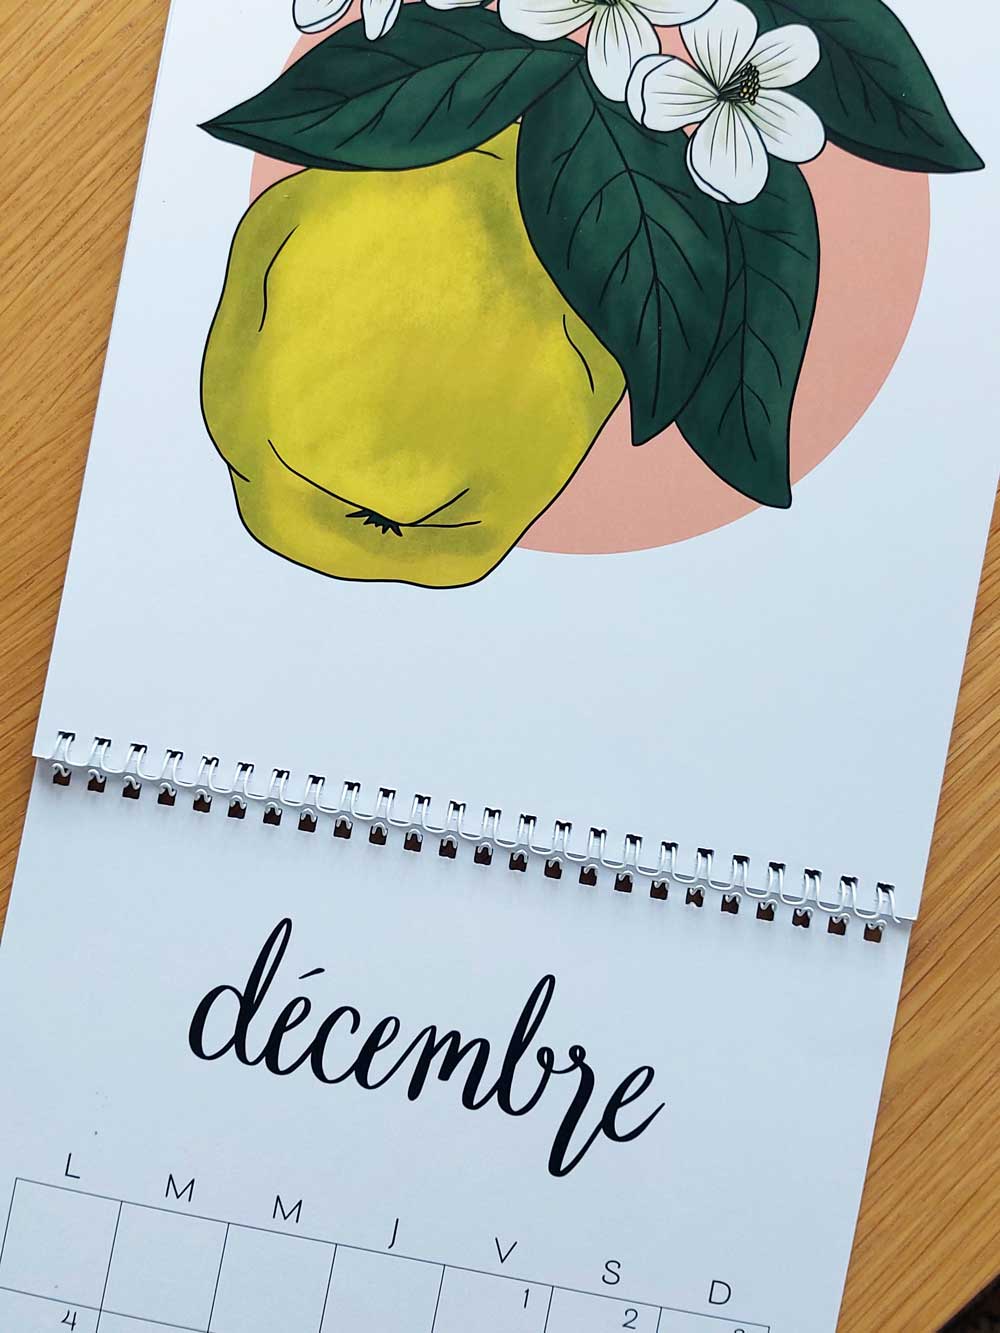 décembre
L M M J V S D
1 2
4